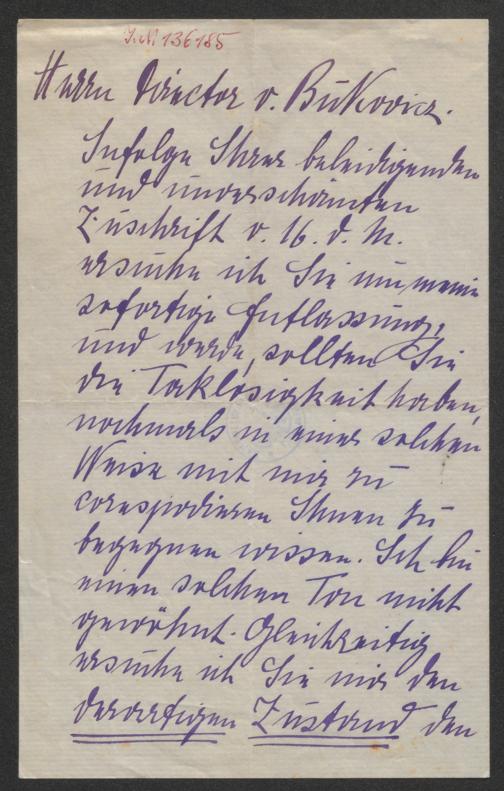 J.N. 136185
Herrn Director v. Bukovicz.
Infolge Ihrer beleidigenden
und unverschämten
Zuschrift v. 16. d. M.
ersuche ich Sie um meine
sofortige Entlassung,
und werde, sollten Sie
die Taklosigkeit haben,
nochmals in einer solchen
Weise mit mir zu
corespodieren Ihnen zu
begegnen wissen. Ich bin
einen solchen Ton nicht
gewöhnt. Gleichzeitig
ersuche ich Sie mir den
derartigen Zustand den